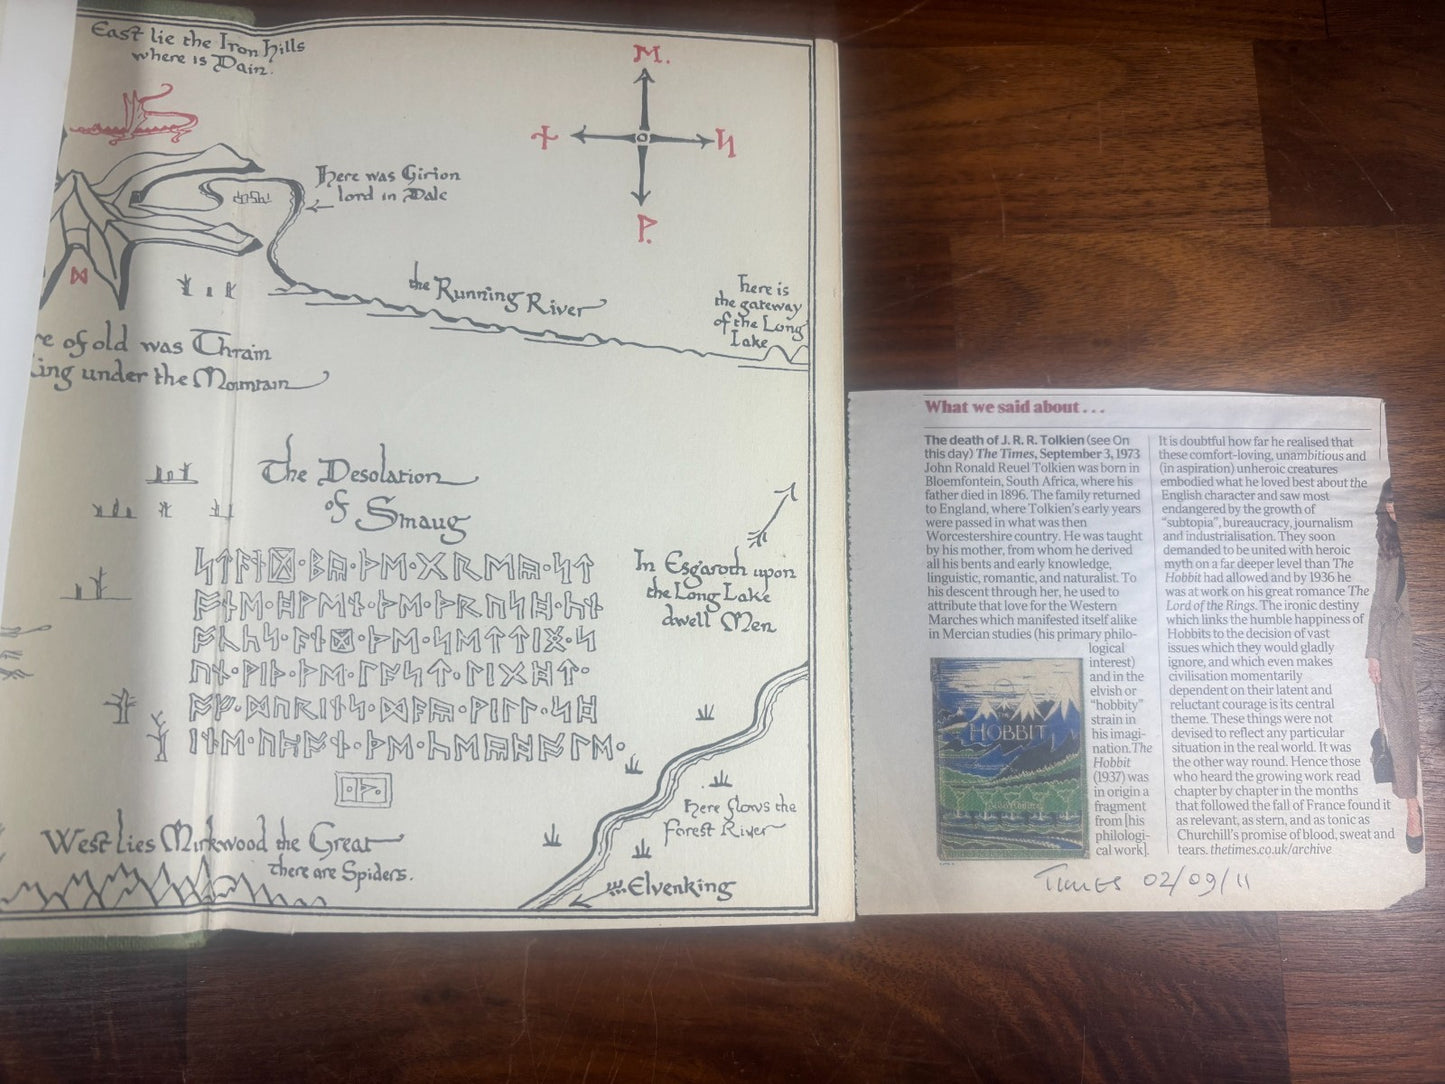 East lie the Iron Hills
where is Dain.
Here was Girion
lord in Dale
ᛖ.
ᚾ
ᛋ
ᚹ.
ᛞ
the Running River
Here is
the gateway
of the Long
Lake
re of old was Thrain
King under the Mountain
The Desolation
of Smaug
ᛋᛏᚫᚾᛞ·ᛒᚣ·ᚦᛖ·ᚷᚱᛖᚣ·ᛋᛏ
ᚩᚾᛖ·ᚻᚹᛖᚾ·ᚦᛖ·ᚦᚱᚢᛋᚻ·ᚳᚾ
ᚩᚳᛋ·ᚫᚾᛞ·ᚦᛖ·ᛋᛖᛏᛏᛁᛝ·ᛋ
ᚢᚾ·ᚹᛁᚦ·ᚦᛖ·ᛚᚫᛋᛏ·ᛚᛁᚷᚻᛏ·
ᚩᚠ·ᛞᚢᚱᛁᚾᛋ·ᛞᚫᚣ·ᚹᛁᛚᛚ·ᛋᚻ
ᛁᚾᛖ·ᚢᛈᚩᚾ·ᚦᛖ·ᚳᛖᚣᚻᚩᛚᛖ·
·ᚦ·
In Esgaroth upon
the Long Lake
dwell Men
Here flows the
Forest River
Elvenking
West lies Mirkwood the Great
there are Spiders.
What we said about . . .
The death of J. R. R. Tolkien (see On
this day) The Times, September 3, 1973
John Ronald Reuel Tolkien was born in
Bloemfontein, South Africa, where his
father died in 1896. The family returned
to England, where Tolkien's early years
were passed in what was then
Worcestershire country. He was taught
by his mother, from whom he derived
all his bents and early knowledge,
linguistic, romantic, and naturalist. To
his descent through her, he used to
attribute that love for the Western
Marches which manifested itself alike
in Mercian studies (his primary philo-
logical
interest)
and in the
elvish or
“hobbity”
strain in
his imagi-
nation. The
Hobbit
(1937) was
in origin a
fragment
from [his
philologi-
cal work].
THE
HOBBIT
It is doubtful how far he realised that
these comfort-loving, unambitious and
(in aspiration) unheroic creatures
embodied what he loved best about the
English character and saw most
endangered by the growth of
“subtopia”, bureaucracy, journalism
and industrialisation. They soon
demanded to be united with heroic
myth on a far deeper level than The
Hobbit had allowed and by 1936 he
was at work on his great romance The
Lord of the Rings. The ironic destiny
which links the humble happiness of
Hobbits to the decision of vast
issues which they would gladly
ignore, and which even makes
civilisation momentarily
dependent on their latent and
reluctant courage is its central
theme. These things were not
devised to reflect any particular
situation in the real world. It was
the other way round. Hence those
who heard the growing work read
chapter by chapter in the months
that followed the fall of France found it
as relevant, as stern, and as tonic as
Churchill's promise of blood, sweat and
tears. thetimes.co.uk/archive
TIMES 02/09/11